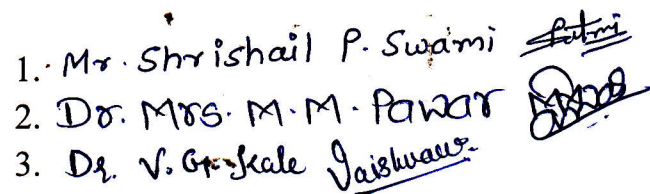 1. Mr. Shrishail P. Swami
2. Dr. Mrs. M. M. Pawar
3. Dr. V. G. Kale